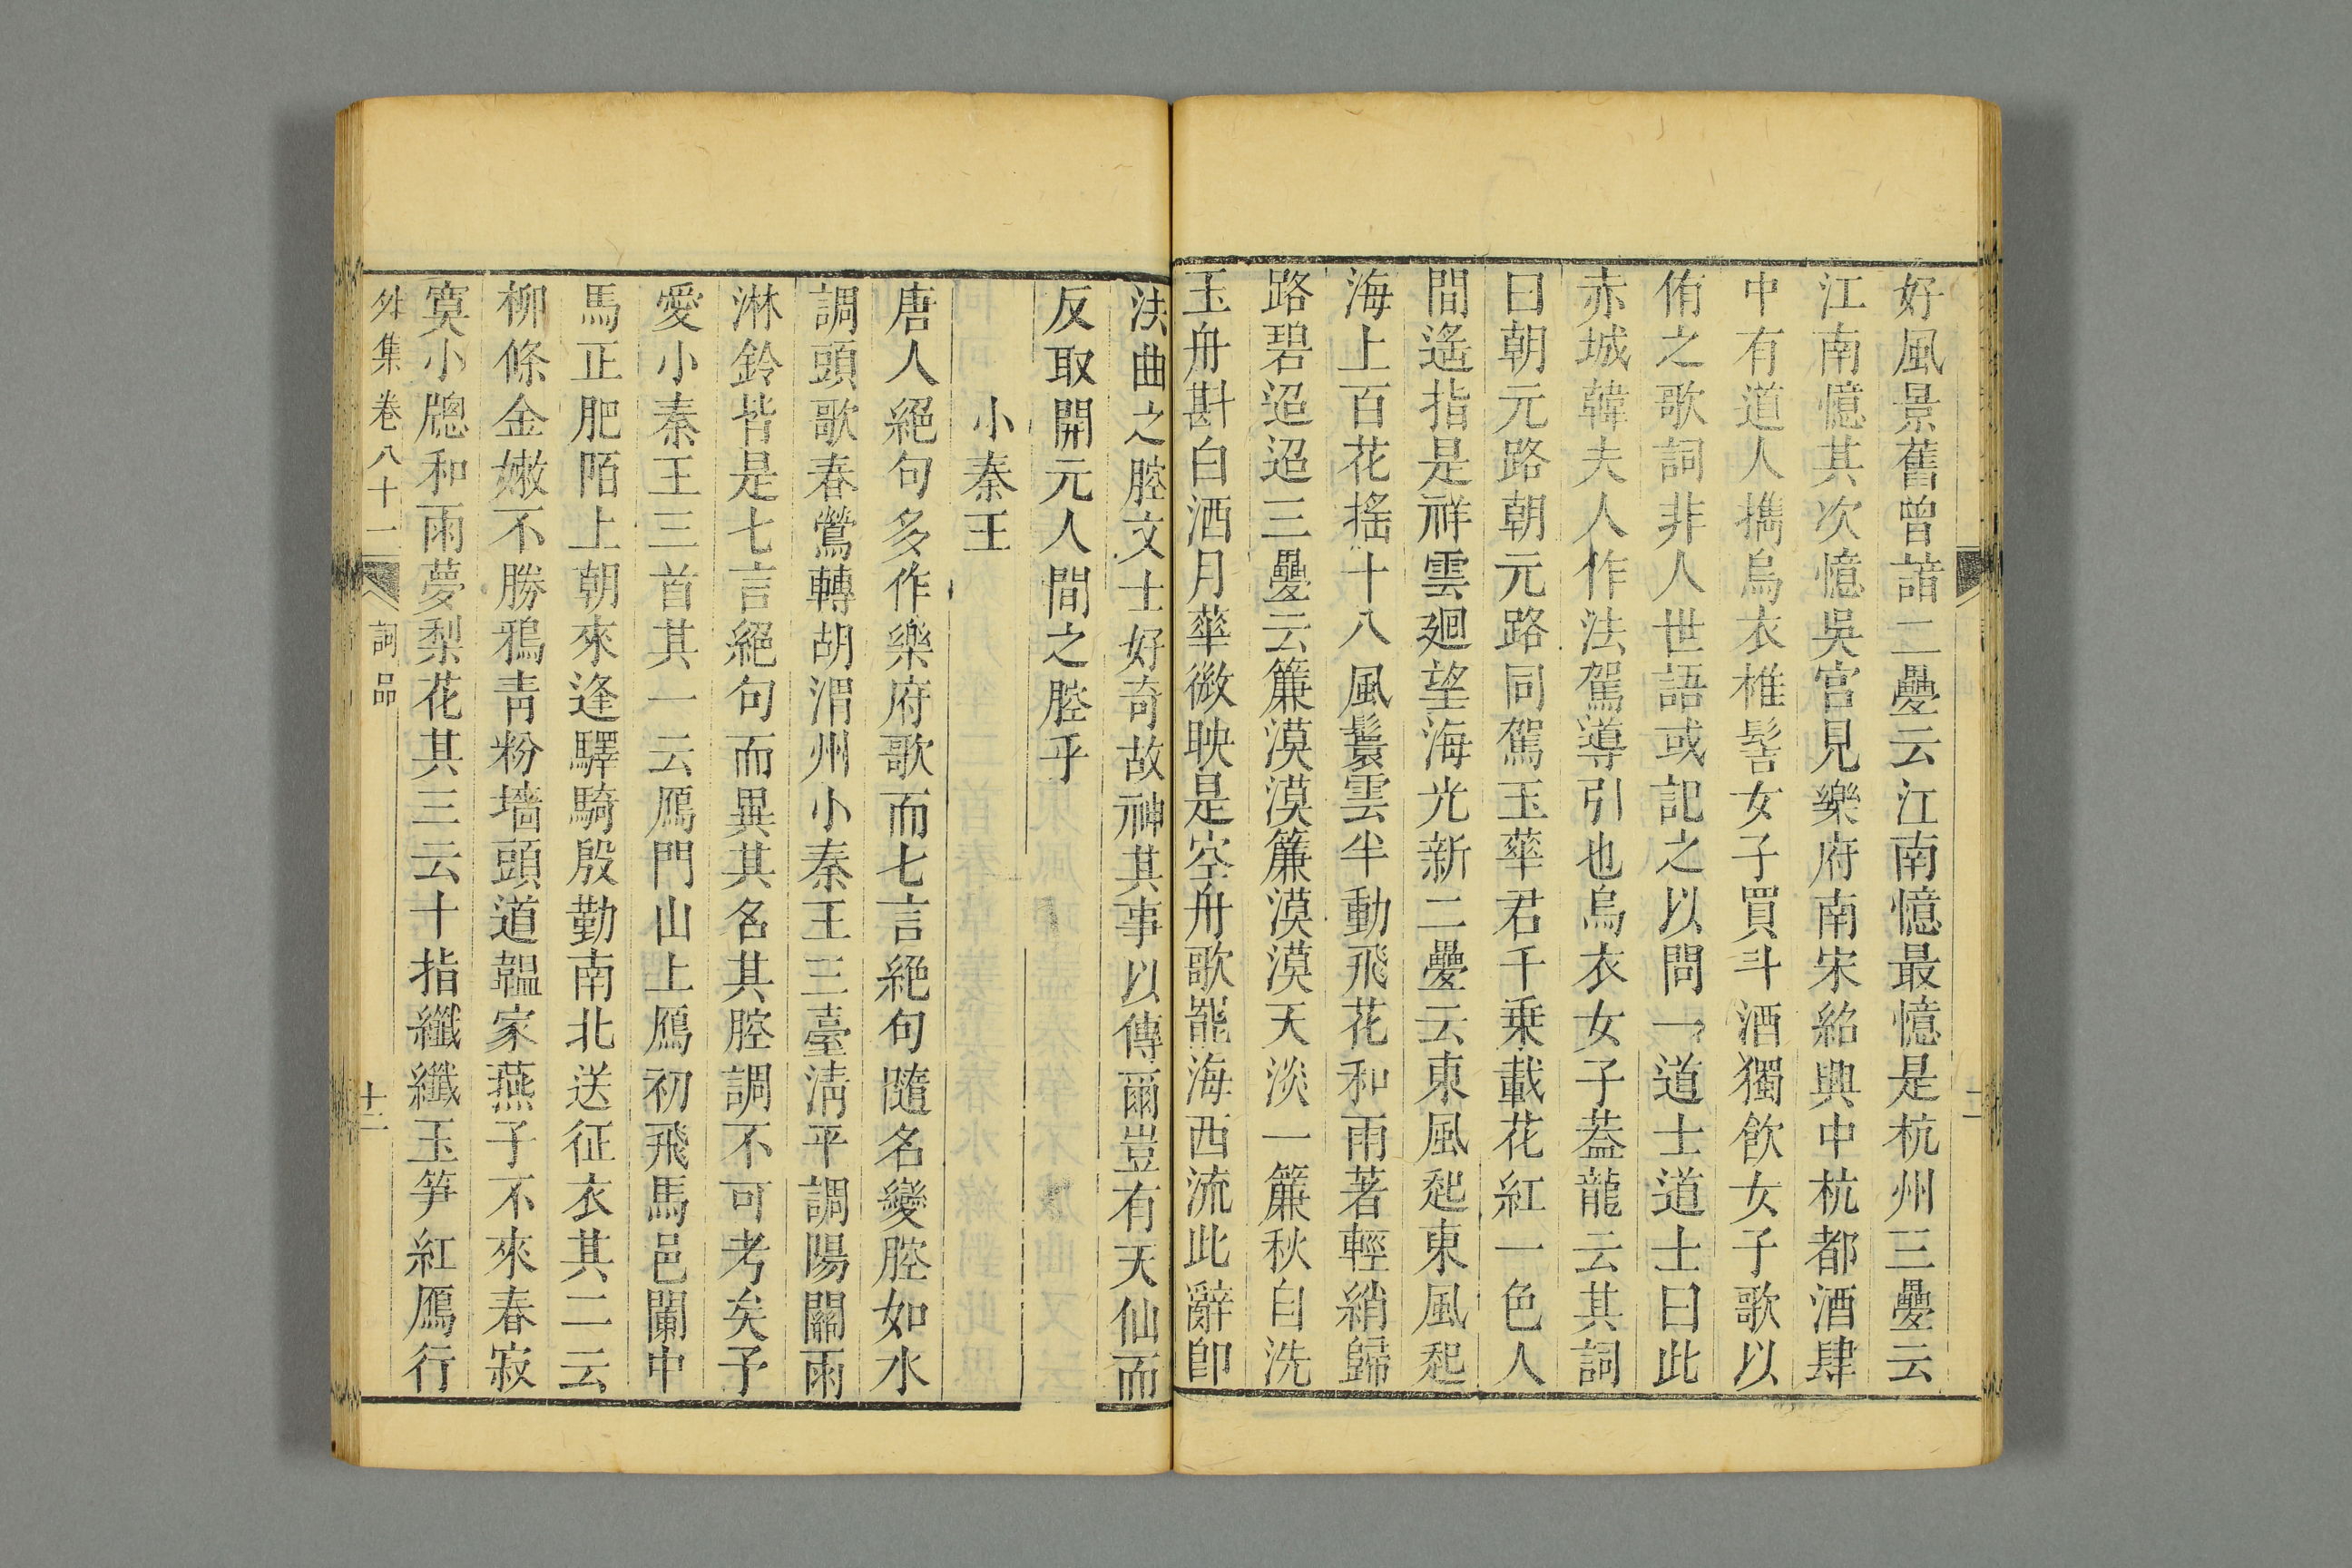 好風景舊曾諳二疊云江南憶最憶是杭州三疊云
江南憶其次憶吳宮見樂府南宋紹興中杭都酒肆
中有道人攜烏衣椎髻女子買斗酒獨飲女子歌以
侑之歌詞非人世語或記之以問一道士道士曰此
赤城韓夫人作法駕導引也烏衣女子蓋龍云其詞
曰朝元路朝元路同駕玉華君千乗載花紅一色人
間遙指是祥雲廻望海光新二疊云東風起東風起
海上百花搖十八風鬟雲半動飛花和雨著輕綃歸
路碧迢迢三疊云簾漠漠簾漠漠天淡一簾秋自洗
玉舟斟白酒月華微映是空舟歌罷海西流此辭即
法曲之腔文士好奇故神其事以傳爾豈有天仙而
反取開元人間之腔乎
小秦王
唐人絕句多作樂府歌而七言絕句隨名變腔如水
調頭歌春鶯轉胡渭州小秦王三臺清平調陽關雨
淋鈴皆是七言絕句而異其名其腔調不可考矣予
愛小秦王三首其一云鴈門山上鴈初飛馬邑闌中
馬正肥陌上朝來逢驛騎殷勤南北送征衣其二云
柳條金嫩不勝鴉青粉墻頭道韞家燕子不來春寂
寞小牎和雨夢梨花其三云十指纖纖玉笋紅鴈行
外集卷八十一
詞品
十二